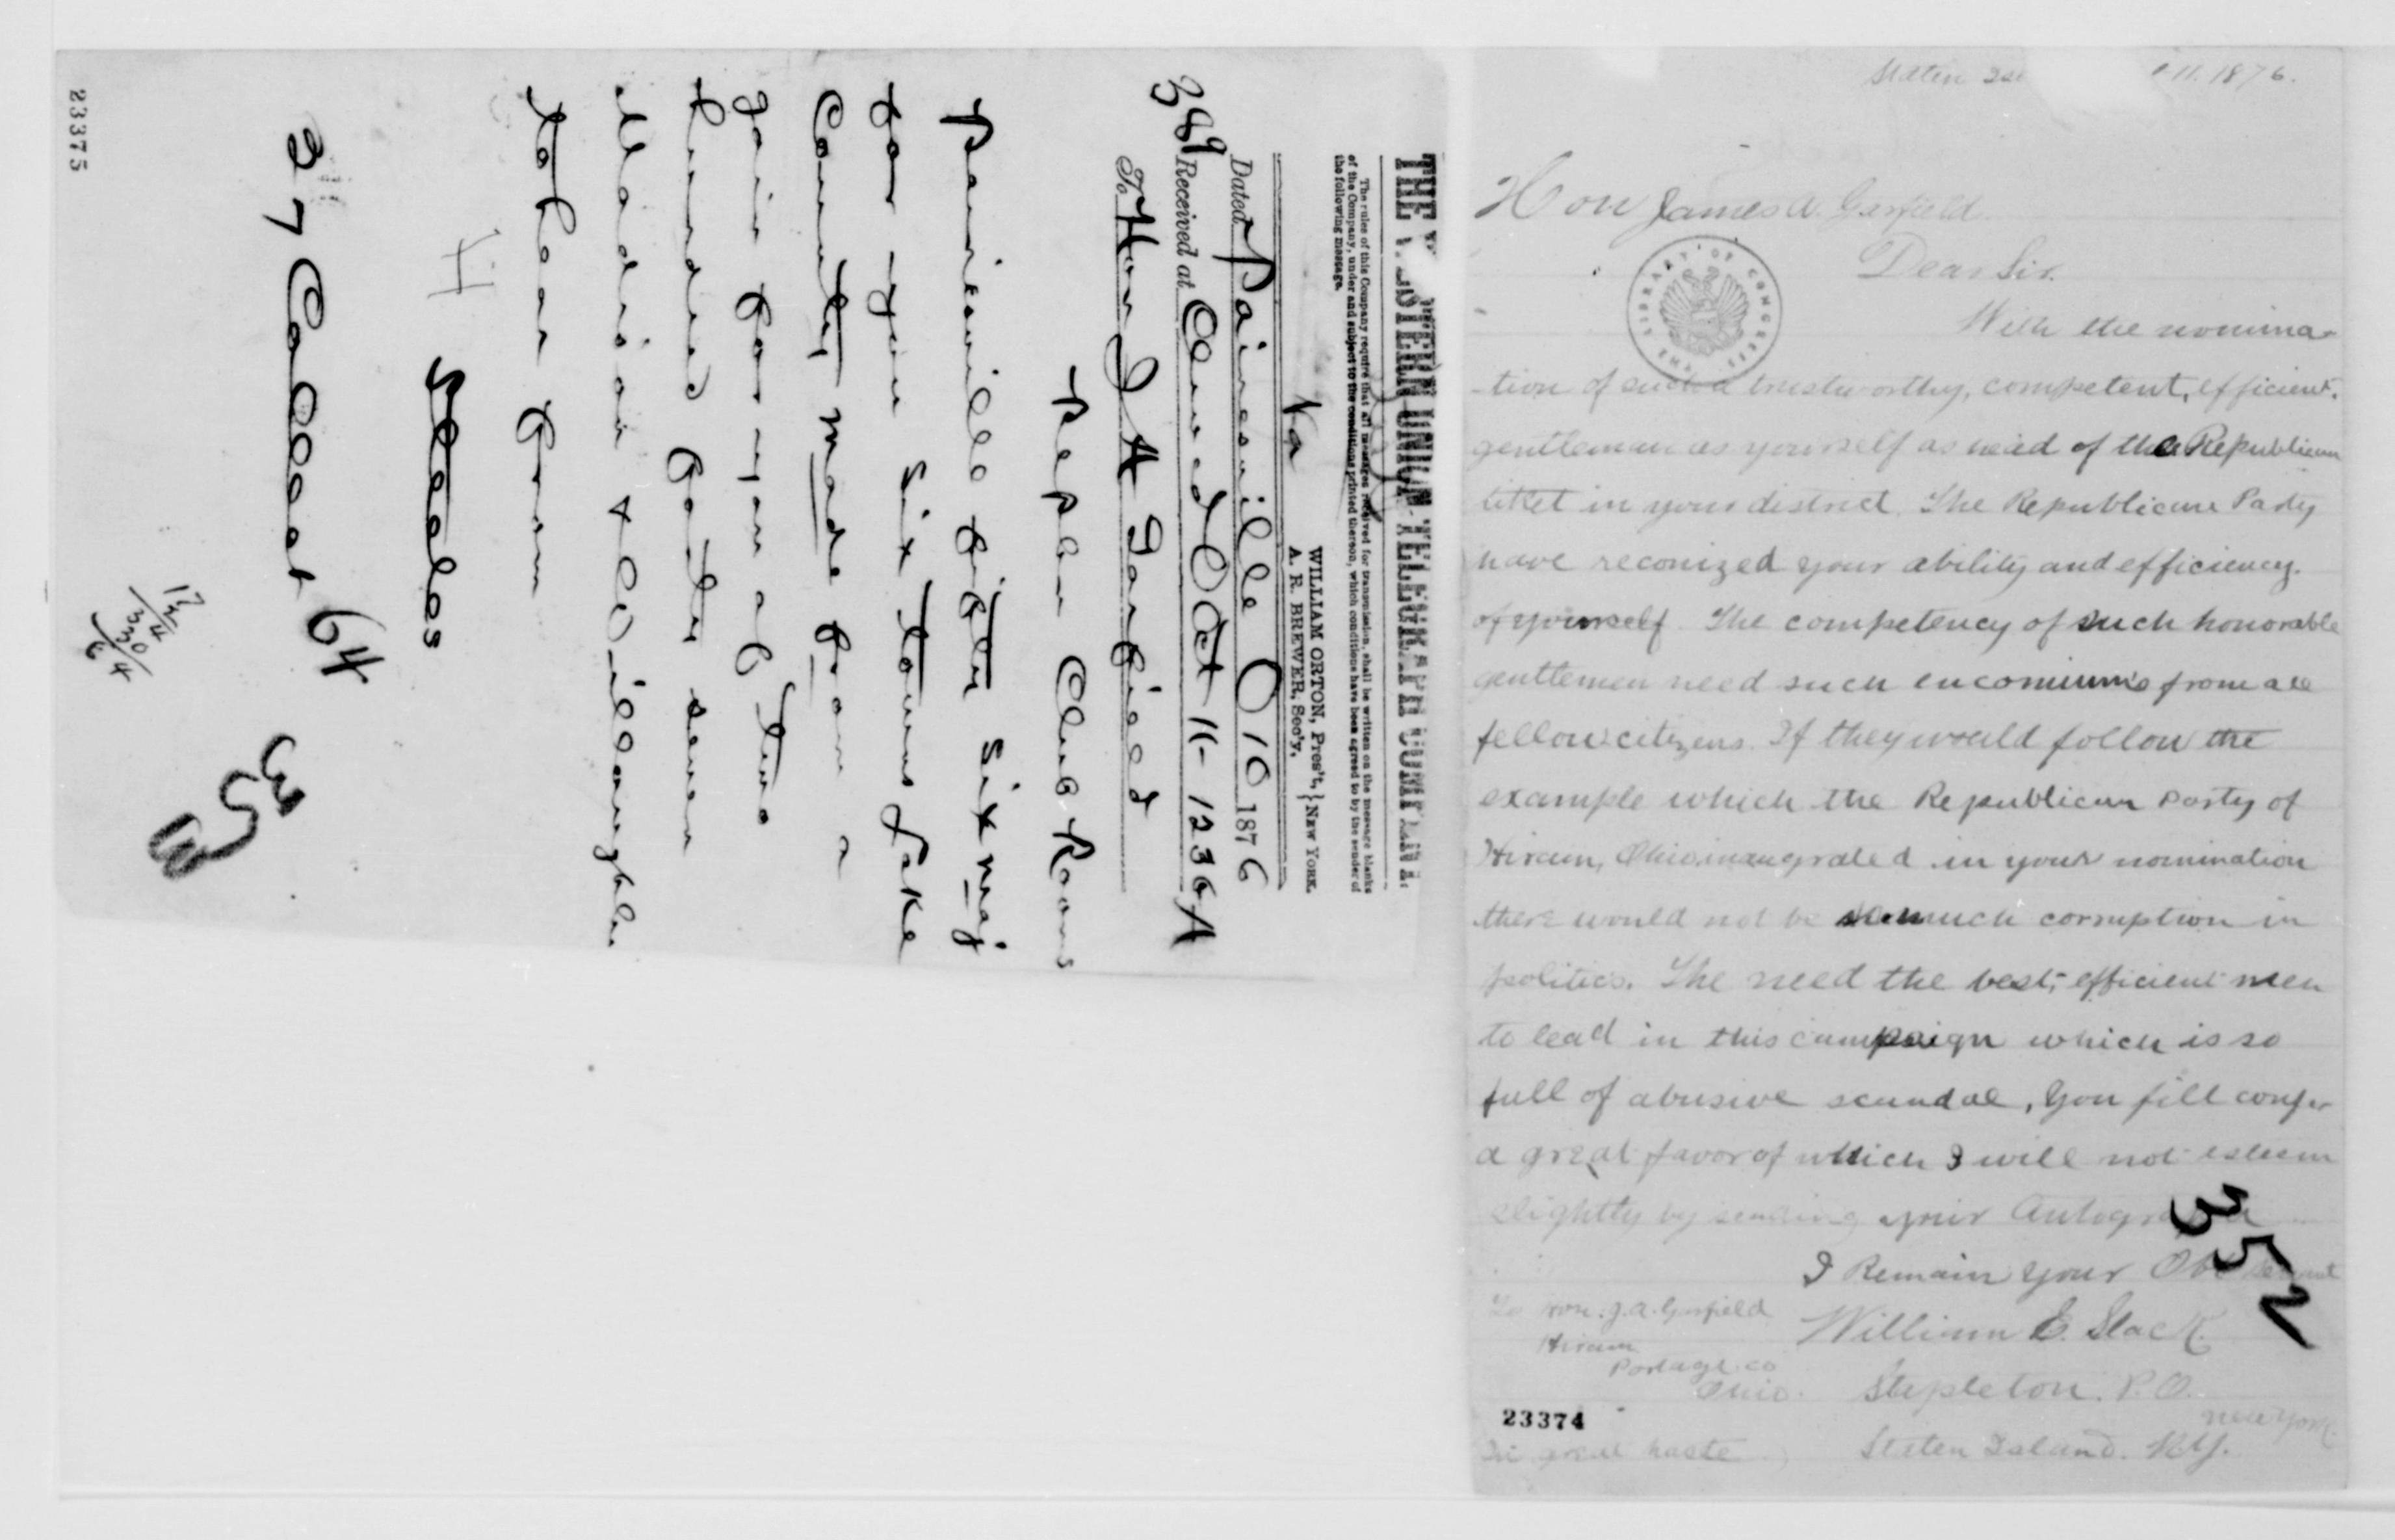 THE WESTERN UNION TELEGRAPH COMPANY.
The rules of this Company require that all messages received for transmission, shall be written on the message blanks
of the Company, under and subject to the conditions printed thereon, which conditions have been agreed to by the sender of
the following message.
WILLIAM ORTON, Pres't, } NEW YORK.
A. R. BREWER, Sec'y,
Dated Painesville O 10 1876
389 Received at Clevd Oct 11- 1236 A
To Hon J A Garfield
Repbn Club Rooms
Painsville fifty six maj
for you six towns Lake
County made from a
gain for you of two
hundred forty seven
Madison & Willoughby
to hear from
Steeles
37 Collect 64
353
23375
Staten 11. 1876.
Hon James A. Garfield
Dear Sir.
LIBRARY OF CONGRESS
With the nomina-
-tion of such a trustworthy, competent, efficient.
gentleman as yourself as head of the Republican
ticket in your district. The Republican Party
have reconized your ability and efficiency.
of yourself. The competency of such honorable
gentlemen need such encomiums from all
fellow citizens. If they would follow the
example which the Republican party of
Hiram, Ohio inaugrated in your nomination
there would not be so much corruption in
politics. The need the best, efficient men
to lead in this campaign which is so
full of abusive scandal, You fill confer
a great favor of which I will not esteem
slightly by sending your Autograph
I Remain your Obt Servant
To Hon. J. A. Garfield
William E. Slack.
Hiram
Portage co
Ohio.
Stapleton. P.O.
New York
Staten Island. N.Y.
In great haste
352
23374